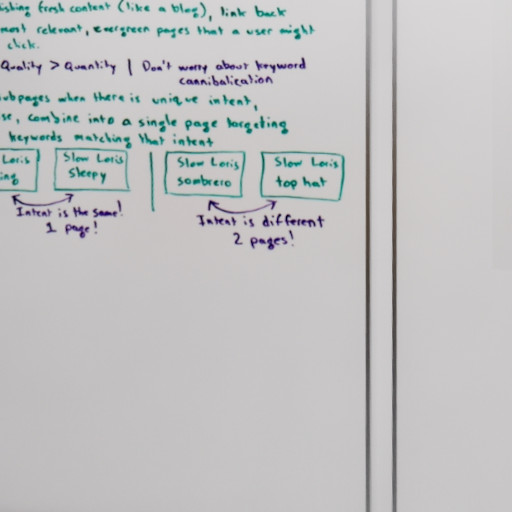 ishing fresh content (like a blog), link back
most relevant, evergreen pages that a user might
click.
Quality > Quantity | Don't worry about keyword
cannibalization
ubpages when there is unique intent,
se, combine into a single page targeting
keywords matching that intent
Loris
ing
Slow Loris
Sleepy
Slow Loris
sombrero
Slow Loris
top hat
Intent is the same!
1 page!
Intent is different
2 pages!